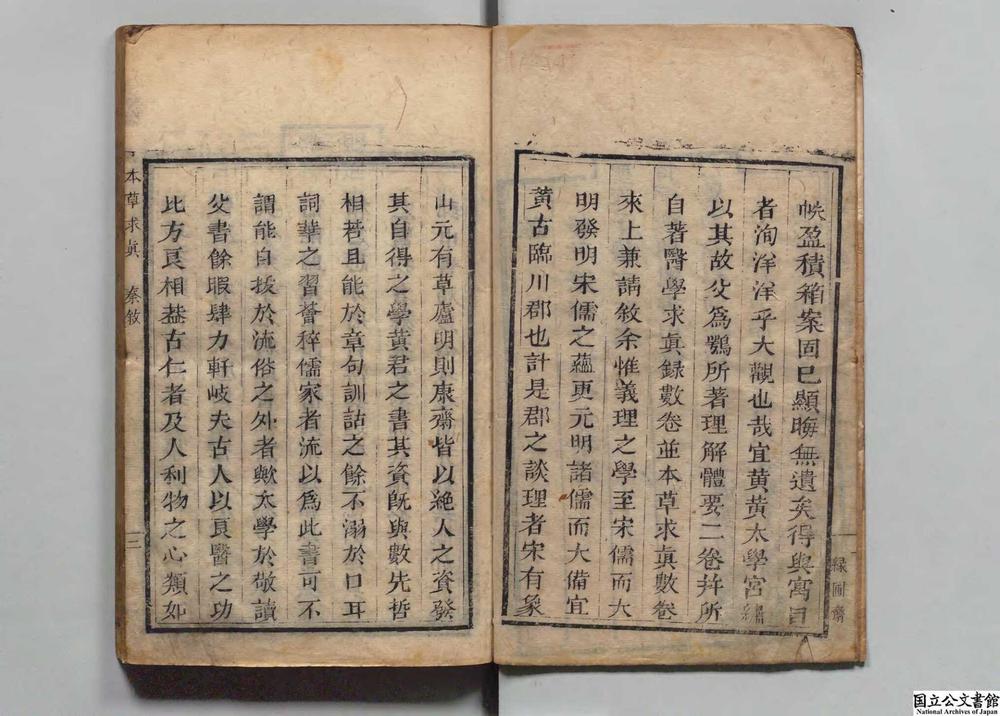 帙盈積箱案固已顯晦無遺矣得與寓目
者洵洋洋乎大觀也哉宜黃黃太學宮繡
以其故父爲鶚所著理解體要二卷并所
自著醫學求眞録數卷並本草求眞數卷
來上兼請敘余惟義理之學至宋儒而大
明發明宋儒之蘊更元明諸儒而大備宜
黃古臨川郡也計是郡之談理者宋有象
緑圃齋
山元有草廬明則康齋皆以絶人之資發
其自得之學黃君之書其資旣與數先哲
相若且能於章句訓詁之餘不溺於口耳
詞華之習薈稡儒家者流以爲此書可不
謂能自拔於流俗之外者歟太學於敬讀
父書餘暇肆力軒岐夫古人以良醫之功
比方良相葢古仁者及人利物之心類如
本草求眞 秦敘 三
国立公文書館
National Archives of Japan